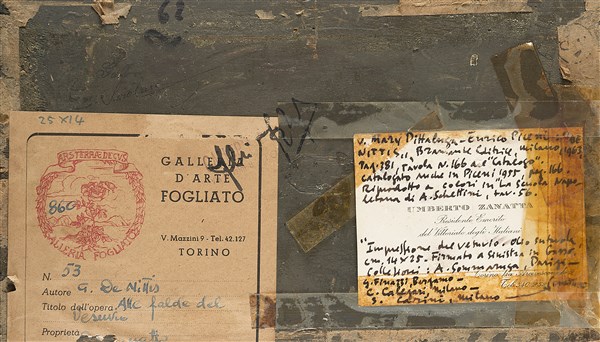 62
25 X 14
ARS TERRAE DECUS
860
GALLERIA FOGLIATO
GALLERIA
D'ARTE
FOGLIATO
V. Mazzini 9 - Tel. 42.127
TORINO
N. 53
Autore G. De Nittis
Titolo dell'opera Alle falde del
Vesuvio
Proprietà
V. Mary Pittaluga - Enrico Piceni: "DE
NITTIS", Bramante Editrice, Milano, 1963
Pag. 381, Tavola N. 166 del "Catalogo".
Catalogato anche in Piceni 1955, pag. 166.
Riprodotto a colori in "La Scuola Nape
letana di A. Schettini, tav. 56.
UMBERTO ZANATTA
Presidente Emerito
del Vittoriale degli Italiani
"Impressione del Vesuvio. Olio su tavola
cm. 14x25. Firmato a sinistra in basso.
Collezioni: A. Sommaruga, Parigi -
G. Finazzi, Bergamo -
C. Callegari, Milano -
S. Milano -